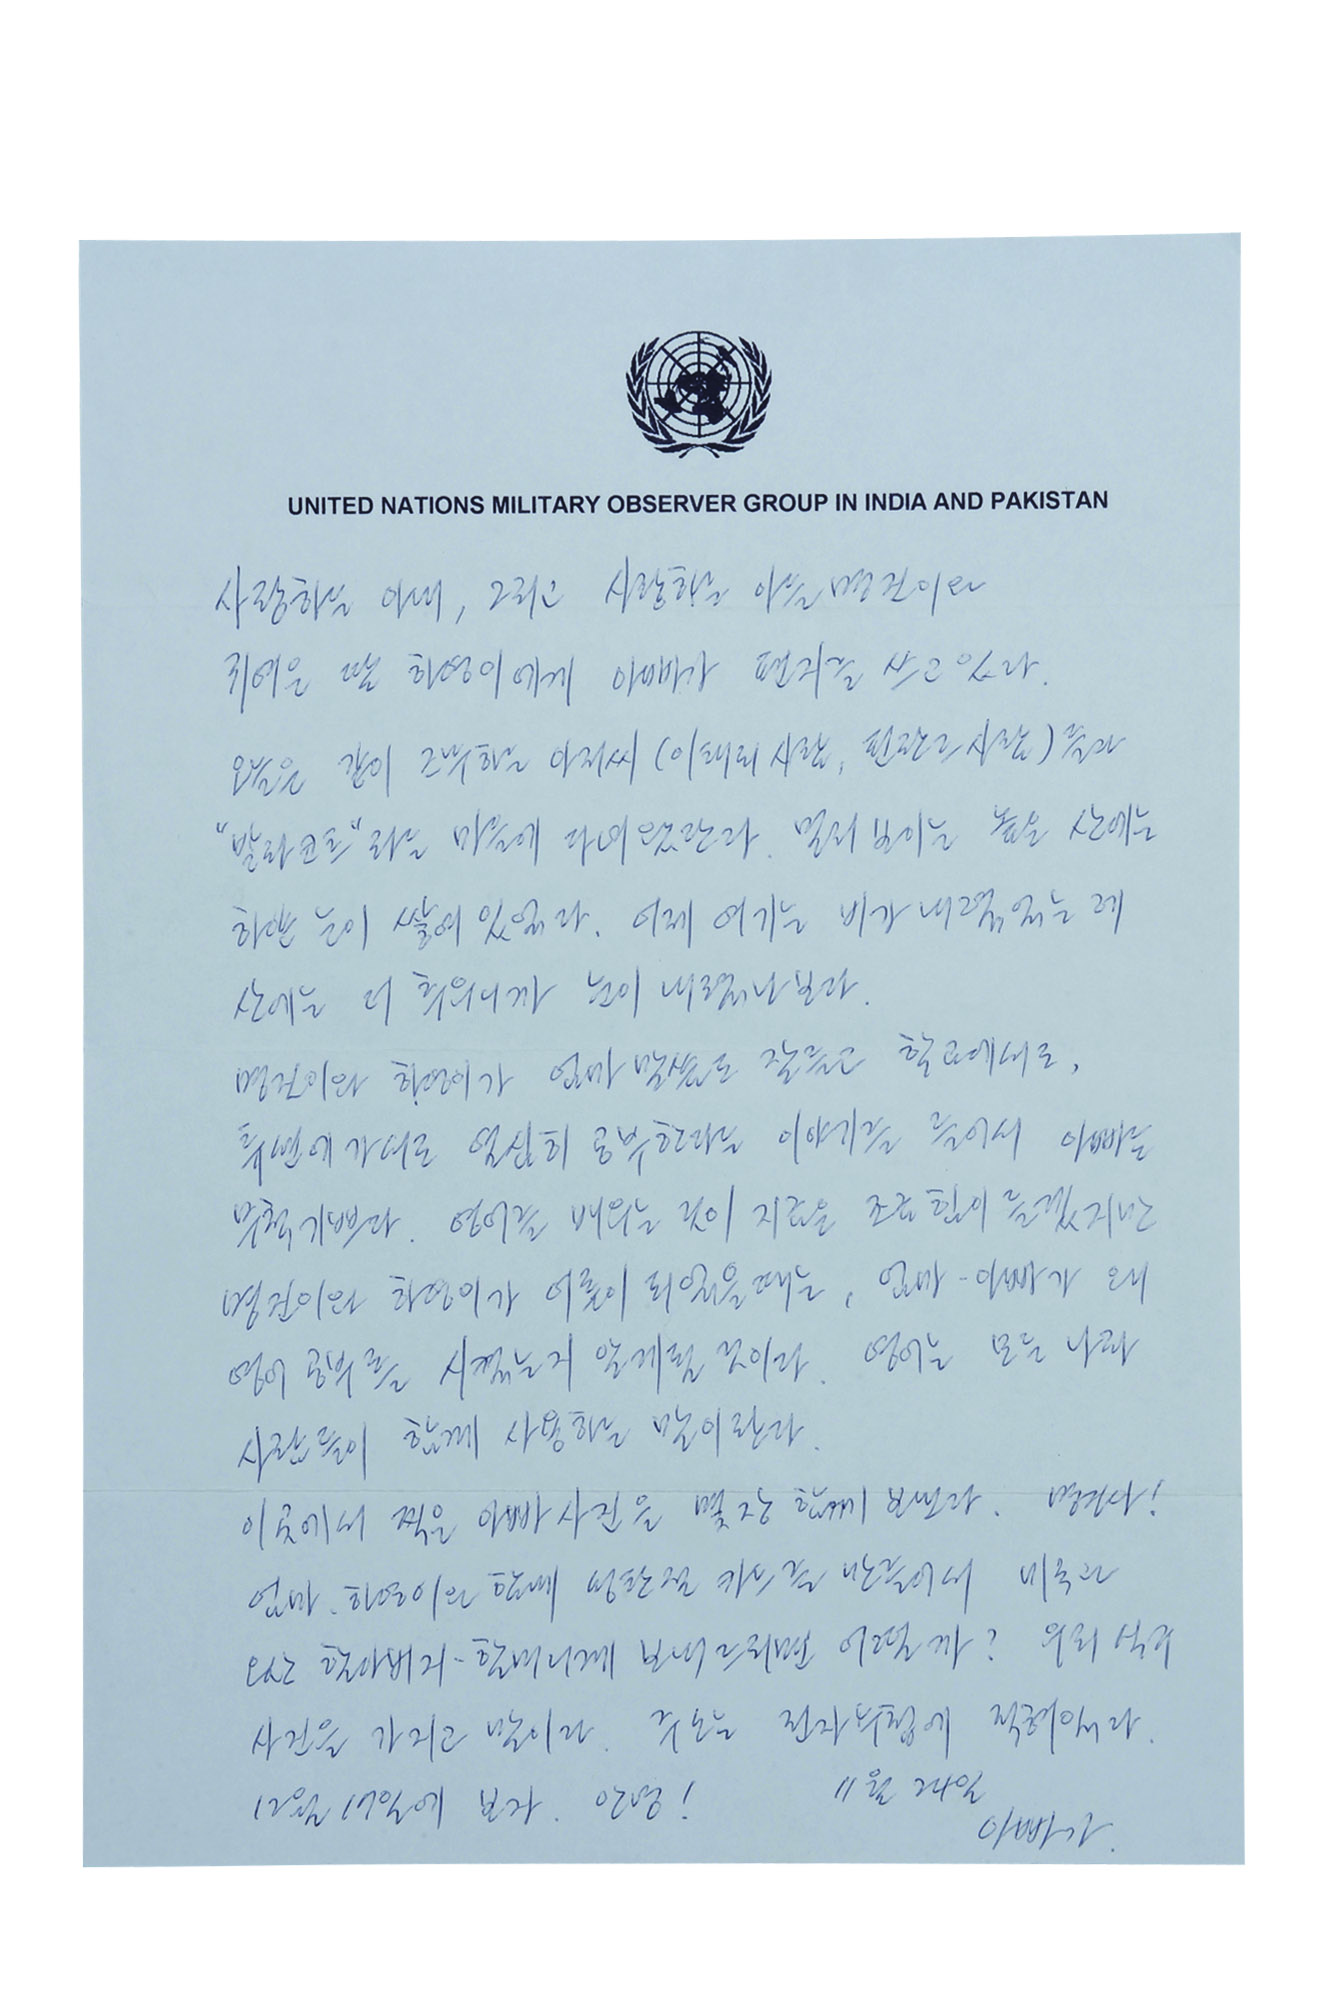 UNITED NATIONS MILITARY OBSERVER GROUP IN INDIA AND PAKISTAN
사랑하는 아내, 그리고 사랑하는 아들 명진이와
귀여운 딸 화영이에게 아빠가 편지를 쓰고 있다.
오늘은 같이 근무하는 아저씨 (이태리 사람, 핀란드 사람)들과
"발라코트"라는 마을에 다녀왔단다. 멀리 보이는 높은 산에는
하얀 눈이 쌓여 있었다. 어제 여기는 비가 내렸었는데
산에는 더 추우니까 눈이 내렸나보다.
명진이와 화영이가 엄마 말씀도 잘듣고 학교에서도,
학원에 가서도 열심히 공부한다는 이야기를 들어서 아빠는
무척 기쁘다. 영어를 배우는 것이 지금은 조금 힘이 들겠지만
명진이와 화영이가 어른이 되었을때는, 엄마-아빠가 왜
영어 공부를 시켰는지 알게될 것이다. 영어는 모든 나라
사람들이 함께 사용하는 말이란다.
이곳에서 찍은 아빠 사진을 몇장 함께 보낸다. 명진아!
엄마. 화영이와 함께 성탄절 카드를 만들어서 미국과
오산 할아버지-할머니께 보내드리면 어떨까? 우리 식구
사진을 가지고 말이다. 주소는 전자수첩에 적혀있다.
12월 17일에 보자. 안녕! 11월 24일
아빠가.